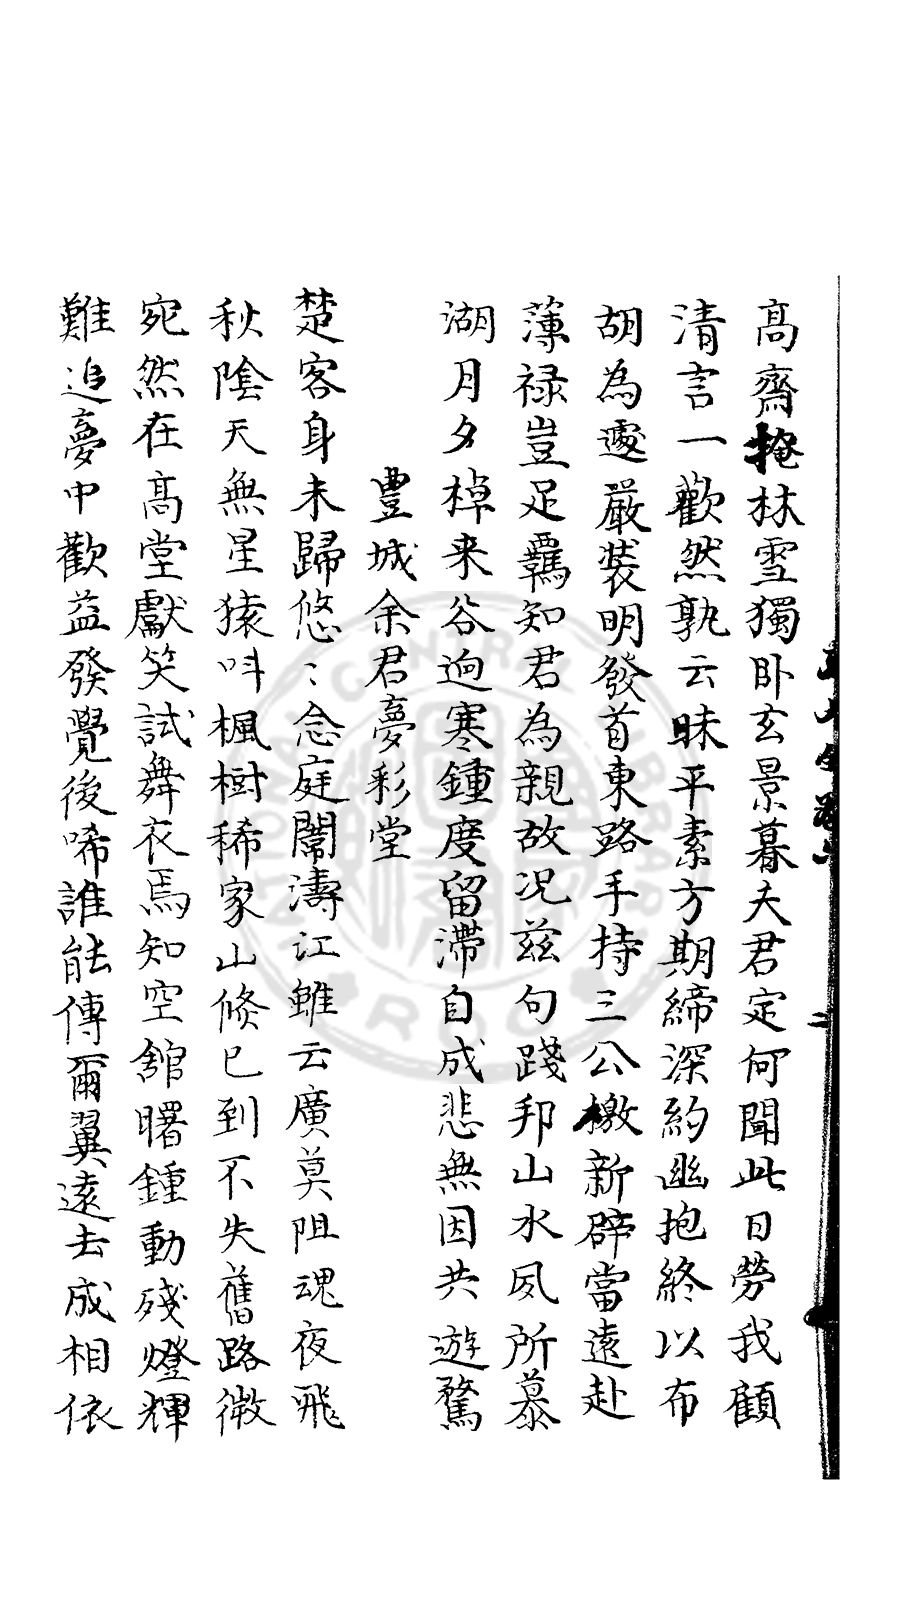 高齋掩林雪獨卧玄景暮夫君定何聞此日勞我顧
清言一歡然孰云昧平素方期締深約幽抱終以布
胡為遽嚴裝明發首東路手持三公檄新辟當遠赴
薄祿豈足羈知君為親故况兹句踐邦山水夙所慕
湖月夕棹来谷逈寒鍾度留滯自成悲無因共遊騖
豐城余君夢彩堂
楚客身未歸悠〻念庭闈濤江雖云廣莫阻魂夜飛
秋陰天無星猿呌楓樹稀家山倐已到不失舊路微
宛然在高堂獻笑試舞衣焉知空舘曙鍾動殘燈輝
難追夢中歡益發覺後唏誰能傳爾翼遠去成相依
NATIONAL CENTRAL LIBRARY
ROC